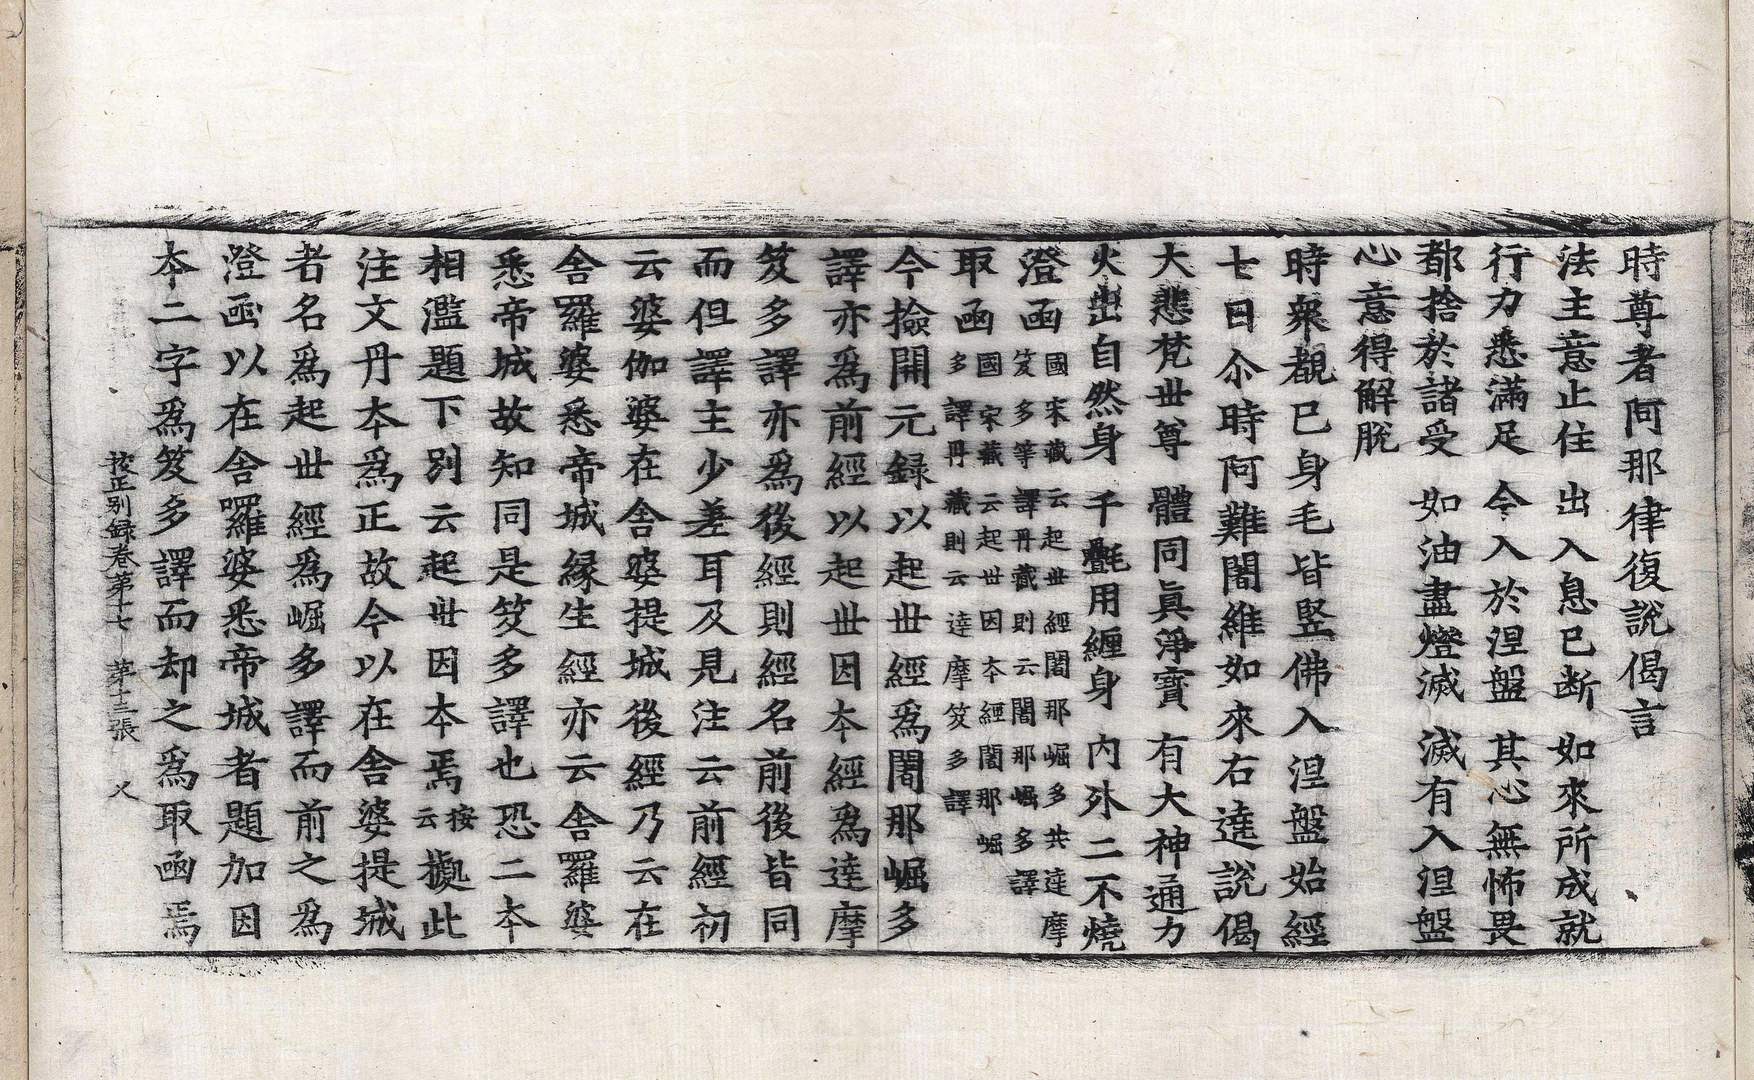 時尊者阿那律復說偈言
法主意止住　出入息已断　如來所成就
行力悉滿足　令入於涅盤　其心無怖畏
都捨於諸受　如油盡燈滅　滅有入涅盤
心意得解脫
時衆覩已身毛皆竪佛入涅盤始經
七日尒時阿難闍維如來右遶說偈
大悲梵丗尊　體同眞淨寶　有大神通力
火出自然身　千㲲用纏身　內外二不燒
澄函國宋藏云起丗經闍那崛多共達摩
笈多等譯丹藏則云闍那崛多譯
取函國宋藏云起丗因夲經闍那崛
多譯丹藏則云達摩笈多譯
今撿開元錄以起丗經爲闍那崛多
譯亦爲前經以起丗因夲經爲達摩
笈多譯亦爲後經則經名前後皆同
而但譯主少差耳及見注云前經初
云婆伽婆在舍婆提城後經乃云在
舍羅婆悉帝城緣生經亦云舍羅婆
悉帝城故知同是笈多譯也恐二夲
相濫題下別云起丗因夲焉按云㩀此
注文丹夲爲正故今以在舍婆提城
者名爲起丗經爲崛多譯而前之爲
澄函以在舍囉婆悉帝城者題加因
夲二字爲笈多譯而却之爲取函焉
挍正别録卷第十七　第十三張　乂